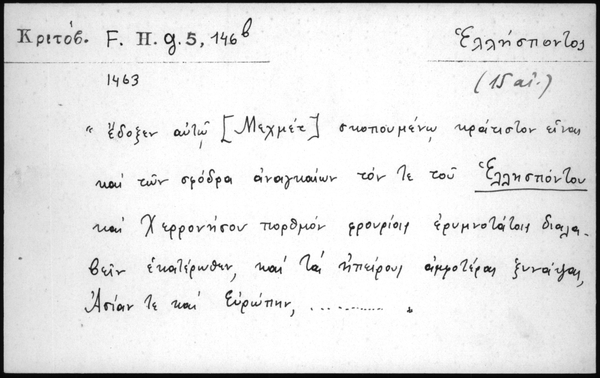 Κριτόβ. F. H. g. 5, 146ᵇ Ἑλλήσποντος
1463 (15 αἰ.)
" ἔδοξεν αὐτῷ [Μεχμέτ] σκοπουμένῳ κράτιστον εἶναι
καί τῶν σφόδρα ἀναγκαίων τόν τε τοῦ Ἑλλησπόντου
καί Χερρονήσου πορθμόν φρουρίοις ἐρυμνοτάτοις διαλα-
βεῖν ἑκατέρωθεν, καί τάς ἠπείρους ἀμφοτέρας ξυνάψαι,
Ἀσίαν τε καί Εὐρώπην, ............. "